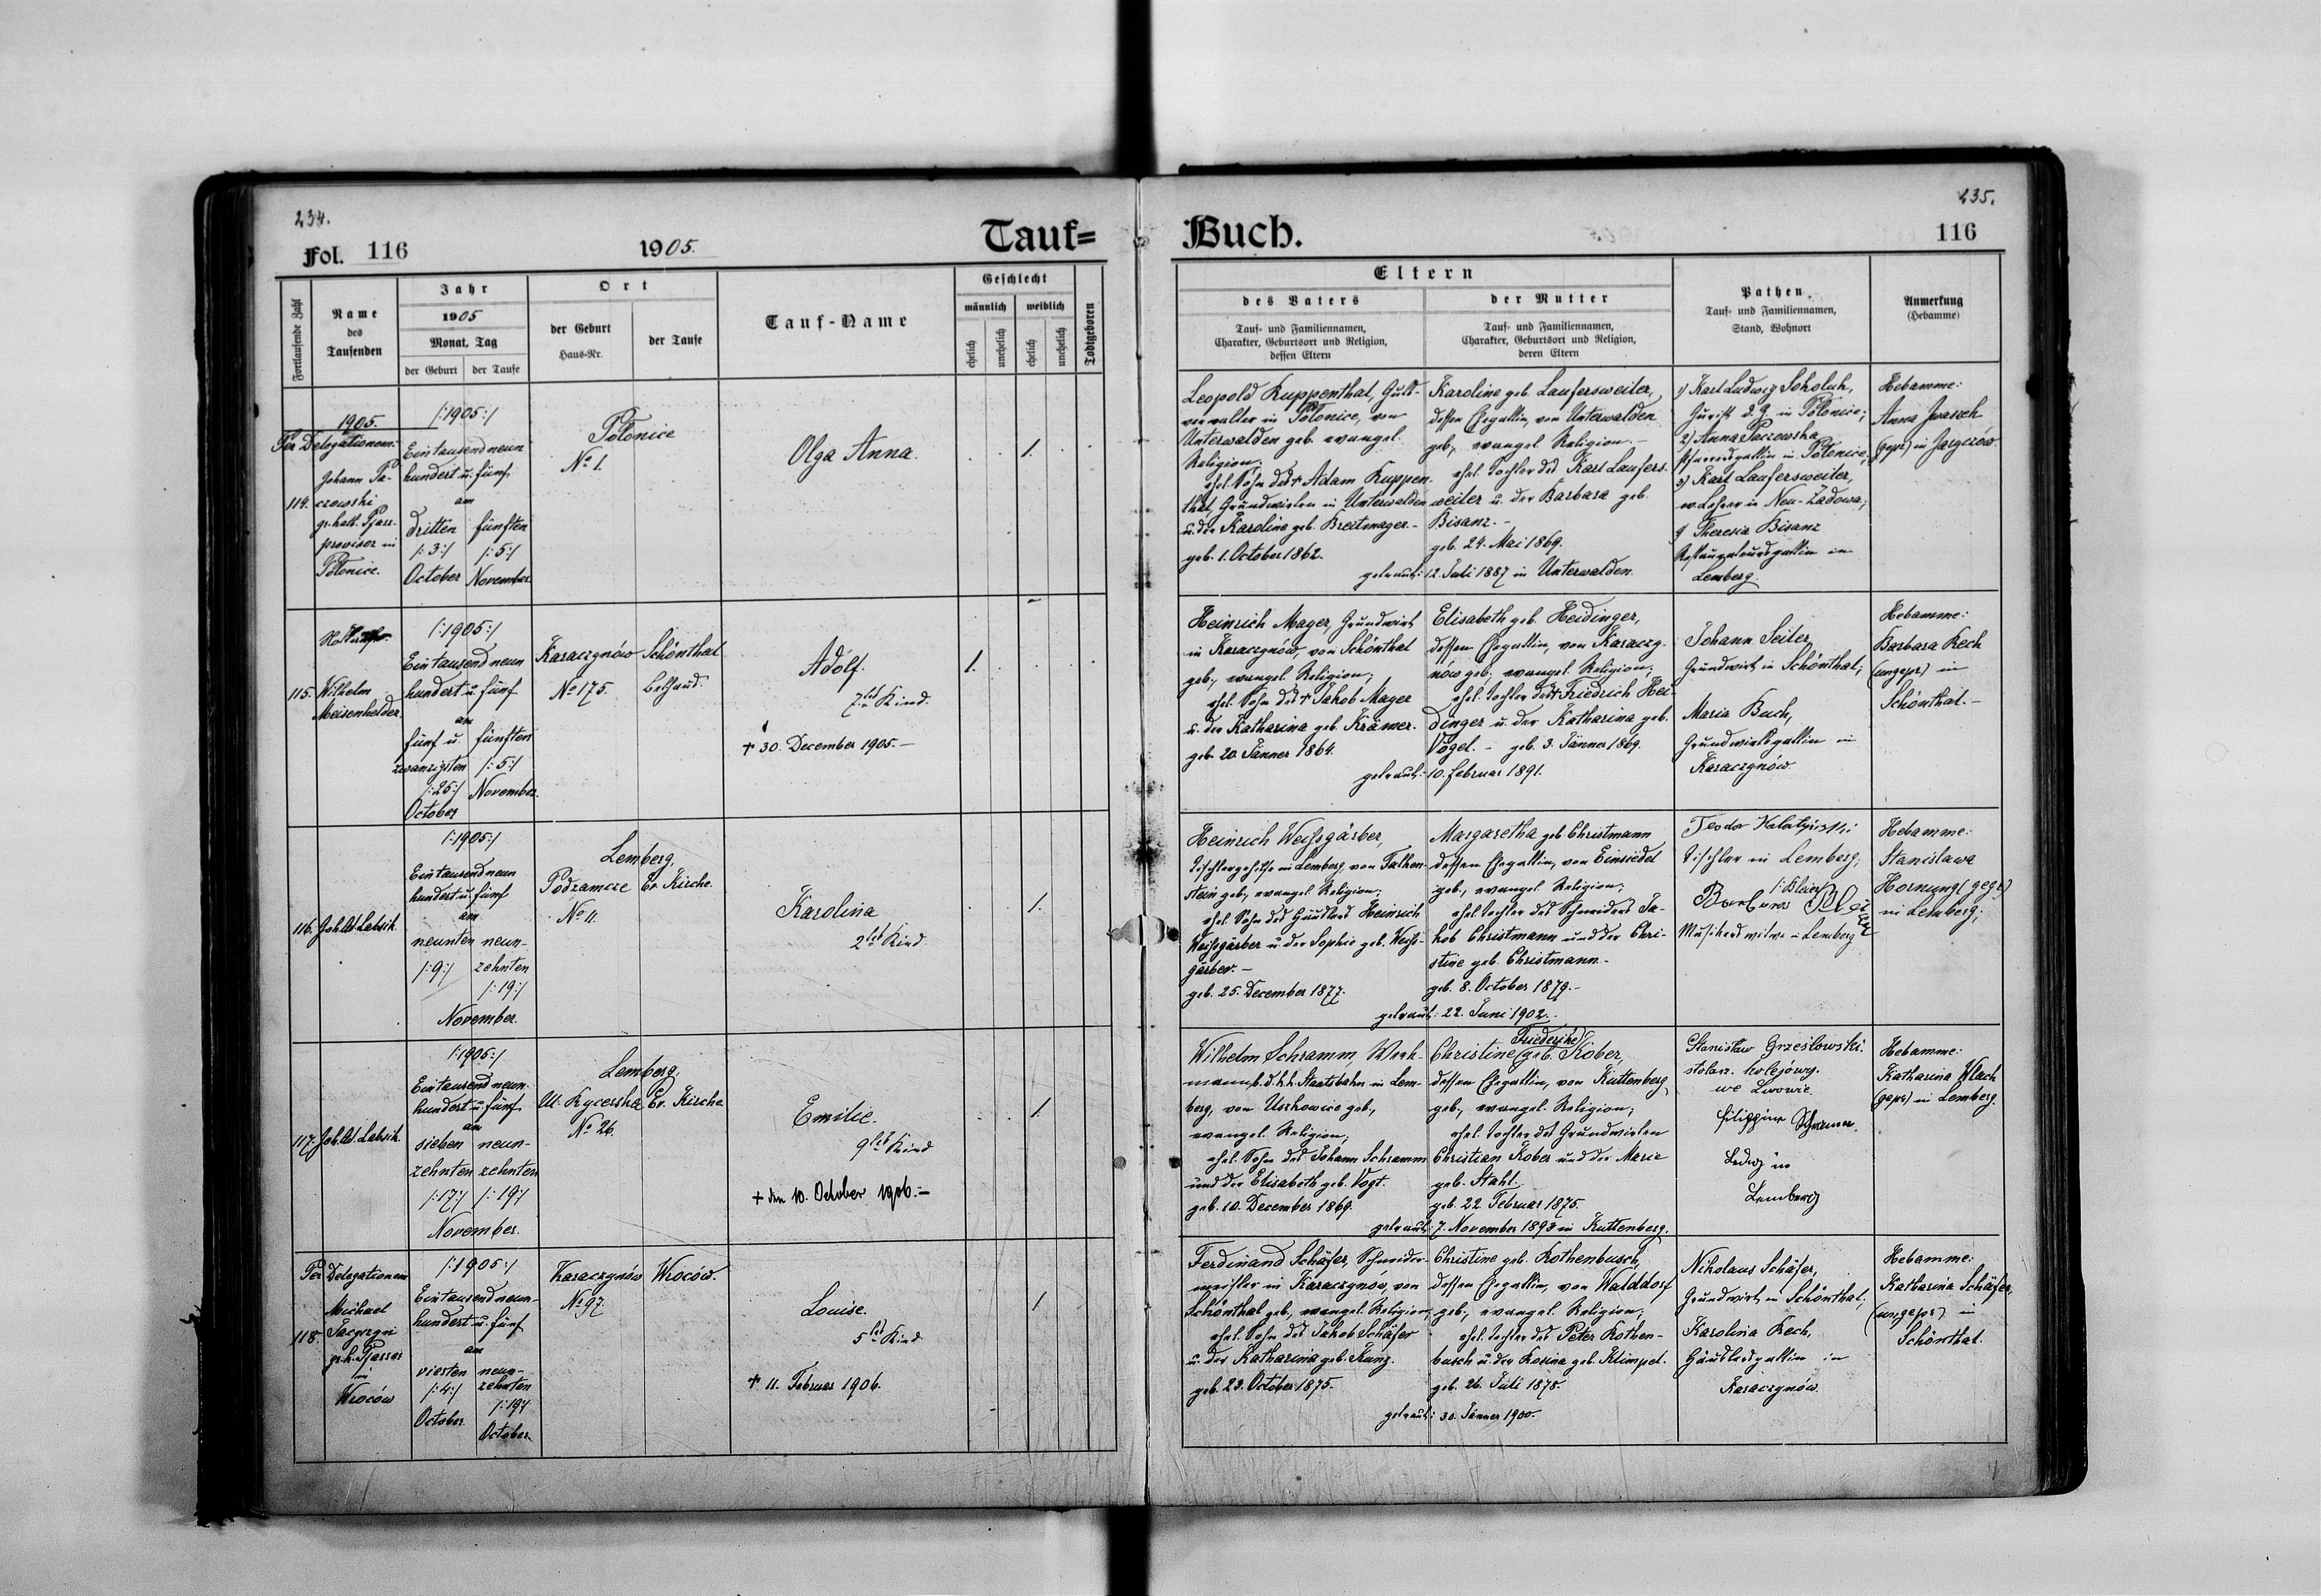 234.
Fol. 116
1905.
Tauf=
Fortlaufende Zahl
Name
des
Taufenden
Jahr
1905
Monat, Tag
der Geburt
der Taufe
Ort
der Geburt
Haus-Nr.
der Taufe
Tauf-Name
Geschlecht
männlich
weiblich
ehelich
unehelich
ehelich
unehelich
Todtgeboren
1905.
Per Delegationem:
114.
Johann Pa-
czowski
gr. kath. Pfarr-
provisor in
Polonice.
/:1905:/
Eintausendneun
hundert u. fünf
am
dritten fünften
/:3:/ /:5:/
October November
Polonice
No 1.
Olga Anna.
1.
115.
Wilhelm
Meisenhelder
/:1905:/
Eintausendneun
hundert u. fünf
am
fünf u. fünften
zwanzigsten /:5:/
/:25:/ November
October
Karaczynów
No 175.
Schönthal
Bethaus.
Adolf.
7tes Kind.
† 30. December 1905.-
1.
116. Joh. Ad. Labsik.
/:1905:/
Eintausendneun
hundert u. fünf
am
neunten neun-
/:9:/ zehnten
/:19:/
November.
Lemberg,
Podzamcze Ev. Kirche.
No 11.
Karolina
2tes Kind.
1.
117. Joh. Ad. Labsik.
/:1905:/
Eintausendneun-
hundert u. fünf
am
sieben neun-
zehnten zehnten
/:17:/ /:19:/
November.
Lemberg,
Ul. Rycerska Ev. Kirche
No 26.
Emilie.
9tes Kind
† den 10. October 1906.-
1.
Per Delegationem
118.
Michael
gr. k. Pfarrer
in
Wroców
/:1905:/
Eintausendneun-
hundert u. fünf
am
vierten neun-
/:4:/ zehnten
October. /:19:/
October.
Karaczynów Wroców.
No 97.
Louise.
5tes Kind
† 11. Februar 1906.
1
235.
Buch.
116
Eltern
des Vaters
Tauf- und Familiennamen,
Charakter, Geburtsort und Religion,
dessen Eltern
der Mutter
Tauf- und Familiennamen,
Charakter, Geburtsort und Religion,
deren Eltern
Pathen.
Tauf- und Familiennamen,
Stand, Wohnort
Anmerkung
(Hebamme)
Leopold Kuppenthal, Guts-
verwalter in Polonice, von
Unterwalden geb. evangel.
Religion;
ehel. Sohn des † Adam Kuppen-
thal, Grundwirten in Unterwalden
u. der Karolina geb. Breitmayer.-
geb. 1. October 1862.
Karoline geb. Laufersweiler,
dessen Ehegattin, von Unterwalden
geb., evangel. Religion.-
ehel. Tochter des Karl Laufers-
weiler u. der Barbara geb.
Bisanz.-
geb. 24. Mai 1869.
getraut: 12. Juli 1887 in Unterwalden.
1) Karl Ludwig Sokoluk,
Jurist d. Z. in Polonice;
2) Anna Paczowska
Pfarrersgattin in Polonice;
3) Karl Laufersweiler,
Lehrer in Neu-Zadowa;
Theresia Bisanz
Restaurateursgattin in
Lemberg.
Hebamme:
Anna
(gepr.) in
Heinrich Mayer, Grundwirt
in Karaczynów, von Schönthal
geb., evangel. Religion;
ehel. Sohn des † Jakob Mayer
u. der Katharina geb. Krämer.
geb. 20. Jänner 1864.
Elisabeth geb. Heidinger,
dessen Ehegattin, von Karaczy-
nów geb., evangel. Religion;
ehel. Tochter des † Friedrich Hei-
dinger u. der Katharina geb.
Vogel.- geb. 3. Jänner 1869.
getraut: 10. Februar 1891.
Johann Seiler,
Grundwirt in Schönthal;
Maria Buch,
Grundwirtsgattin in
Karaczynów.
Hebamme:
Barbara Kech
(ungepr.) in
Schönthal.-
Heinrich Weißgärber,
Tischlergehilfe in Lemberg, von Falken-
stein geb., evangel. Religion;
ehel. Sohn des Häuslers Heinrich
Weißgärber u. der Sophie geb. Weiß-
gärber.-
geb. 25. December 1877.
Margaretha geb. Christmann
dessen Ehegattin, von Einsiedel
geb., evangel. Religion;
ehel. Tochter des Schneiders Ja-
kob Christmann und der Chri-
stine geb. Christmann.-
geb. 8. October 1879.-
getraut: 22. Juni 1902.-
Teodor
Tischler in Lemberg;
Barbara
Musikers witwe in Lemberg
Hebamme:
Stanislawa
Hornung (gepr.)
in Lemberg;
Wilhelm Schramm, Werk-
mann b. d. k.k. Staatsbahn in Lem-
berg, von Uszkowice geb.,
evangel. Religion;
ehel. Sohn des Johann Schramm
und der Elisabeth geb. Vogt.
geb. 10. December 1869.
Friederike
Christine geb. Kober,
dessen Ehegattin, von Kuttenberg
geb., evangel. Religion;
ehel. Tochter des Grundwirten
Christian Kober und der Maria
geb. Stahl.
geb. 22. Februar 1875.
getraut: 7. November 1893 in Kuttenberg.
Stanisław Grzesłowski.
stolarz kolejowy.
we Lwowie.
Filippine
Ledig in
Lemberg
Hebamme:
Katharina Wlach
(gepr.) in Lemberg.
Ferdinand Schäfer, Schneider-
meister in Karaczynów, von
Schönthal geb., evangel. Religion;
ehel. Sohn des Jakob Schäfer
u. der Katharina geb. Kunz.
geb. 23. October 1875.
Christine geb. Rothenbusch,
dessen Ehegattin, von Walddorf
geb., evangel. Religion;
ehel. Tochter des Peter Rothen-
busch u. der Rosina geb. Klimpel.
geb. 26. Juli 1878.
getraut: 30. Jänner 1900.
Nikolaus Schäfer,
Grundwirt in Schönthal;
Karolina Kech,
Häuslersgattin in
Karaczynów.
Hebamme:
Katharina Schäfer,
(ungepr.) in
Schönthal.